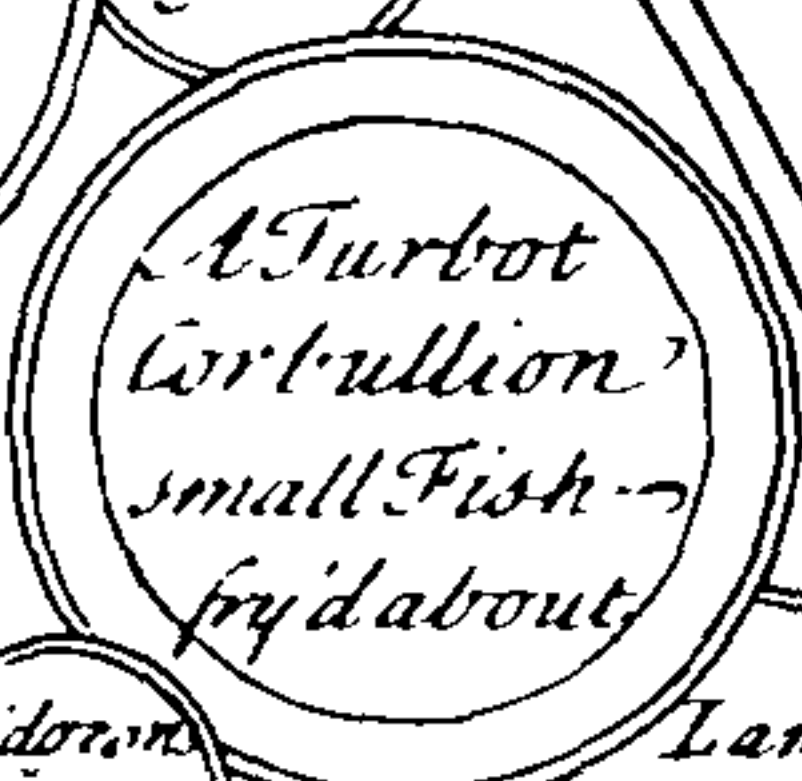 A Turbot
Corbullion
small Fish
fry'd about